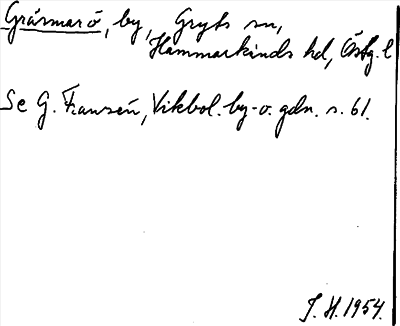 Gräsmarö, by, Gryts sn,
Hammarkinds hd, Östg. l
Se G. Franzén, Vikbol. by- o. gdn. s. 61.
J. H. 1954.